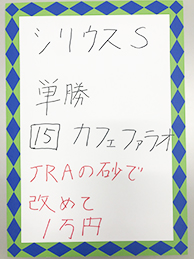 シリウスS
単勝
15 カフェファラオ
JRAの砂で
改めて
1万円